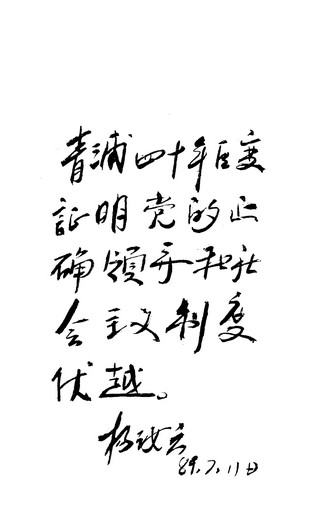 青浦四十年巨变
証明党的正
确領导和社
会主义制度
优越。
89.7.11日